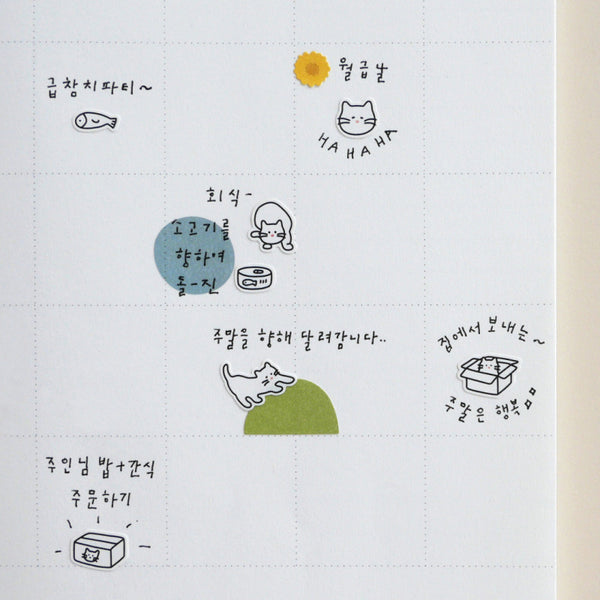 급 참치파티~
월급날
HAHAHA
회식-
소고기를
향하여
돌-진
주말을 향해 달려갑니다..
집에서 보내는~
주말은 행복
주인님 밥+간식
주문하기